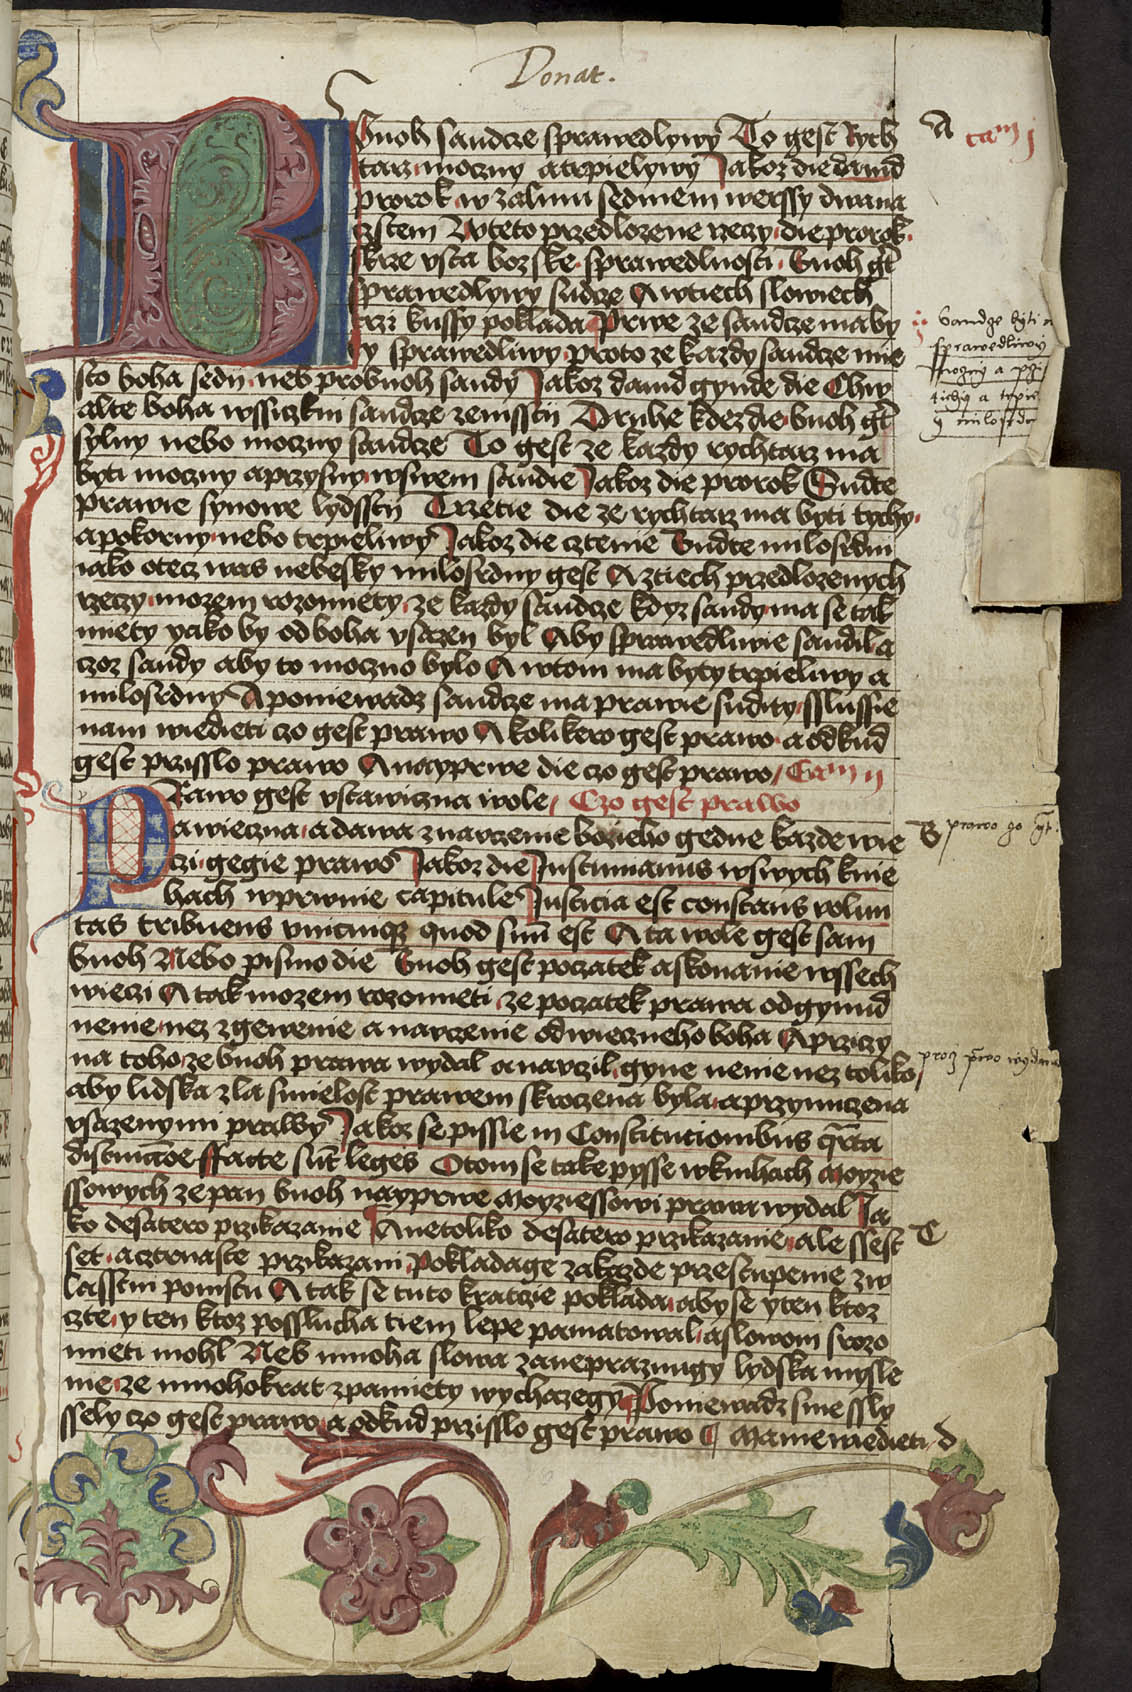 Donat.
Buoh sandcze sprawedlywy To gest Rych
tarz moczny a trpielywy Jakoz die dauid
prorok w zalmu sedmem werssy dwana
cztem Wteto przedlozene rzeczy die prorok
skrze vsta bozske sprawedlnosti Buoh gt
sprawedlywy sudcze A wtiech slowiech
trzi kussy poklada Prwe ze sandcze ma by
ty sprawedliwy proto ze kazdy sandcze mie
sto boha sedy neb pro buoh sandy Jakoz dauid gynde die Chw
alte boha wssiczkni sandcze zemsstij Druhe kdez die buoh gt
sylny nebo moczny sandcze To gest ze kazdy rychtarz ma
byti moczny a przysny wswem sandie Jakoz die prorok Sudte
prawie synowe lydsstij Trzetie die ze rychtarz ma byti tychy
a pokorny nebo trpieliwy Jakoz die cztenie Budte milosrdni
iako otecz was nebesky milosrdny gest A ztiech przedlozenych
rzeczy mozem rozomiety ze kazdy sandcze kdyz sandy ma se tak
miety yako by od boha vsazen byl Aby sprawedliwie sandil a
czoz sandy aby to moczno bylo A wtom ma byty trpieliwy a
milosrdny A poniewadz sandcze ma prawie sudity sslussie
nam wiedieti czo gest prawo A kolikero gest prawo a odkud
gest przisslo prawo A nayprwe die czo gest prawo Cam ij
Prawo gest vstawiczna wole Czo gest prawo
a wieczna a dawa znawczenie bozieho gedne kazde wie
czi gegie prawo Jakoz die Justinianus wswych knie
hach wprwnie capitule Justicia est constans volun
tas tribuens vnicuiq quod suu est A ta wole gest sam
buoh Nebo pismo die Buoh gest poczatek a skonanie wssech
wieczi A tak mozem rozomieti ze poczatek prawa odgynud
nenie nez zgewenie a nawczenie od wieczneho boha A przicy
na toho ze buoh prawa wydal a nawczil gyne nenie nez toliko
aby lidska zla smielost prawem skroczena byla a przymczena
vsazenymi prawy Jakoz se pissie in Constitutionibus qrta
distinctoe ffacte sut leges O tom se take pysse wknihach Moyzie
ssowych ze pan buoh nayprwe Moyziessowi prawa wydal Ja
ko desatero przikazanie A netoliko desatero przikazanie ale ssest
set a cztrnaste przikazani Pokladage za kazde przestupenie zw
lasstni pomstu A tak se tuto kratcze poklada aby se y ten ktoz
czte y ten ktoz posslucha tiem lepe pamatowal a slowom srozo
mieti mohl Neb mnoha slowa zaneprazniugy lydska mysle
nie ze mnohokrat zpamiety wychazegy Poniewadz sme ssly
ssely czo gest prawo a odkud przisslo gest prawo Mame wiedieti
A
cam j
Sandze byti
sprawedliwy
moczny a
tichy a trpie
y milosrd
B prawo czo gest
procz prawo wydan
C
d